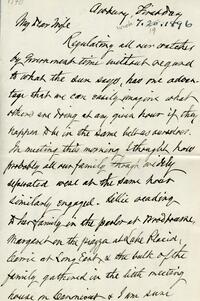 My Dear Wife
7.26.1896
Regulating all our watches
by Government time without regard
to what the sun says, has one advan-
tage that we can easily imagine what
others are doing at any given hour if they
happen to be in the same belt as ourselves.
In meeting this morning I thought how
probably all our family though widely
separated were at the same hour
similarly engaged. Lillie reading
to her family in the parlor at
Margaret on the piazza at Lake Placid,
at Long & the bulk of the
family gathered in the little meeting
house in & I am sure